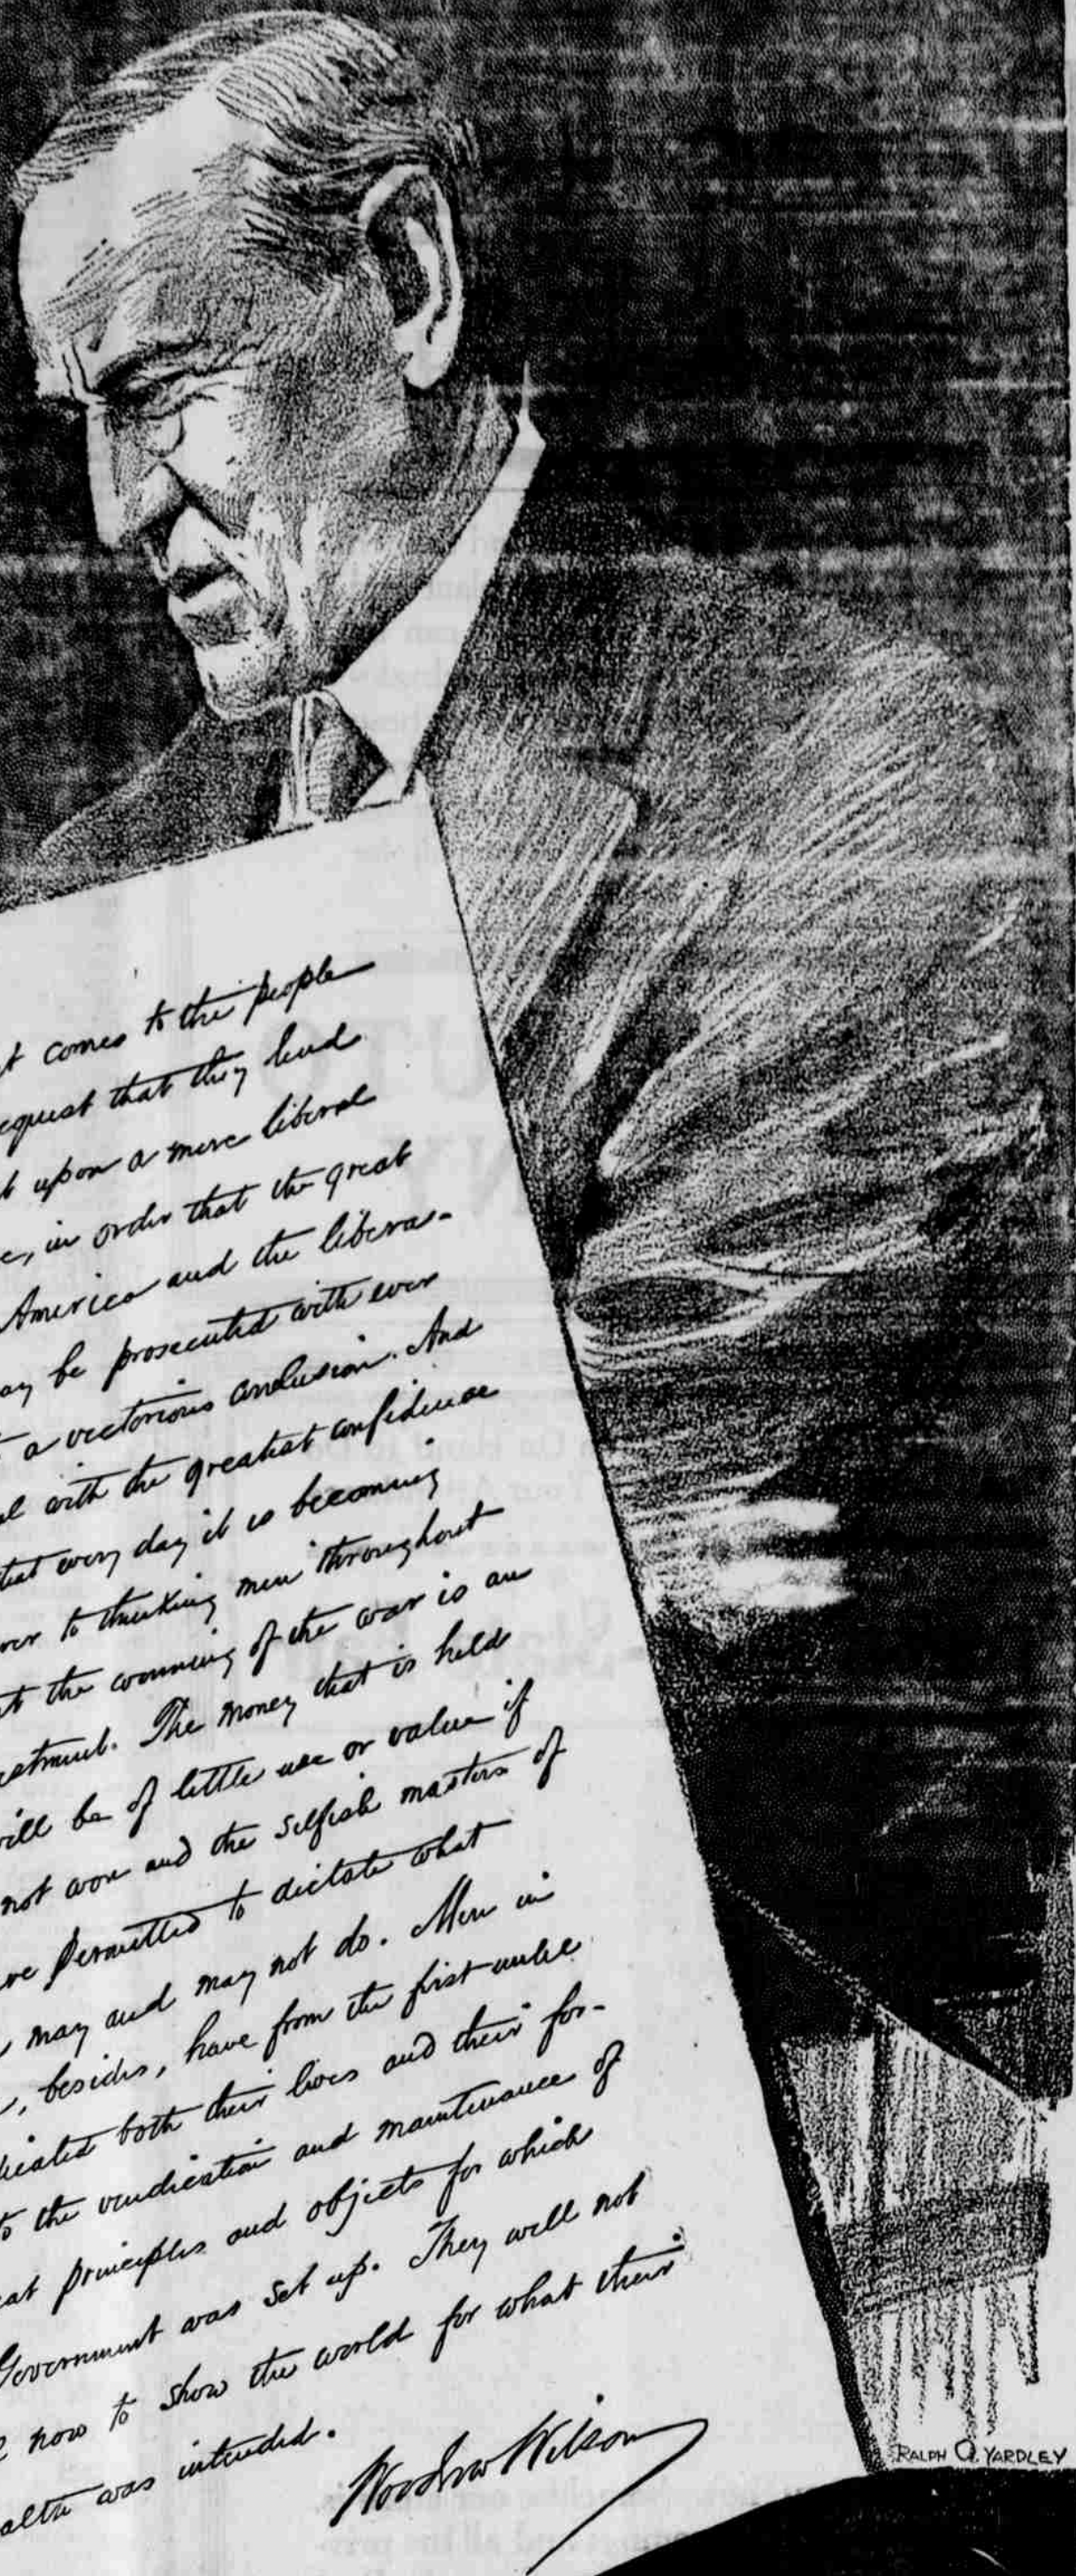 t comes to the people
equest that they lend
t upon a more liberal
e, in order that the great
America and the libera-
ay be prosecuted with ever
a victorious conclusion. And
l with the greatest confidence
that every day it is becoming
rer to thinking men throughout
at the winning of the war is an
estment. The money that is held
ill be of little use or value if
not won and the selfish masters of
re permitted to dictate what
may and may not do. Men in
, besides, have from the first until
dicated both their lives and their for-
to the vindication and maintenance of
eat principles and objects for which
Government was set up. They will not
now to show the world for what their
alth was intended.
Woodrow Wilson
RALPH O. YARDLEY